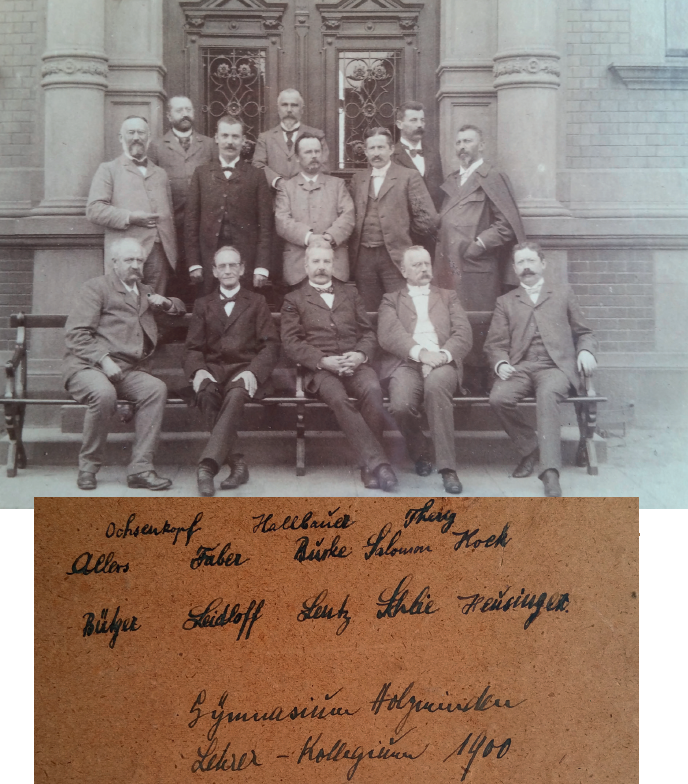 Ochsenkopf Hallbauer
Allers Faber Burke Salomon Hock
Bütger Leidloff Lentz Schlie Heusinger.
Gymnasium Holzminden
Lehrer - Kollegium 1900